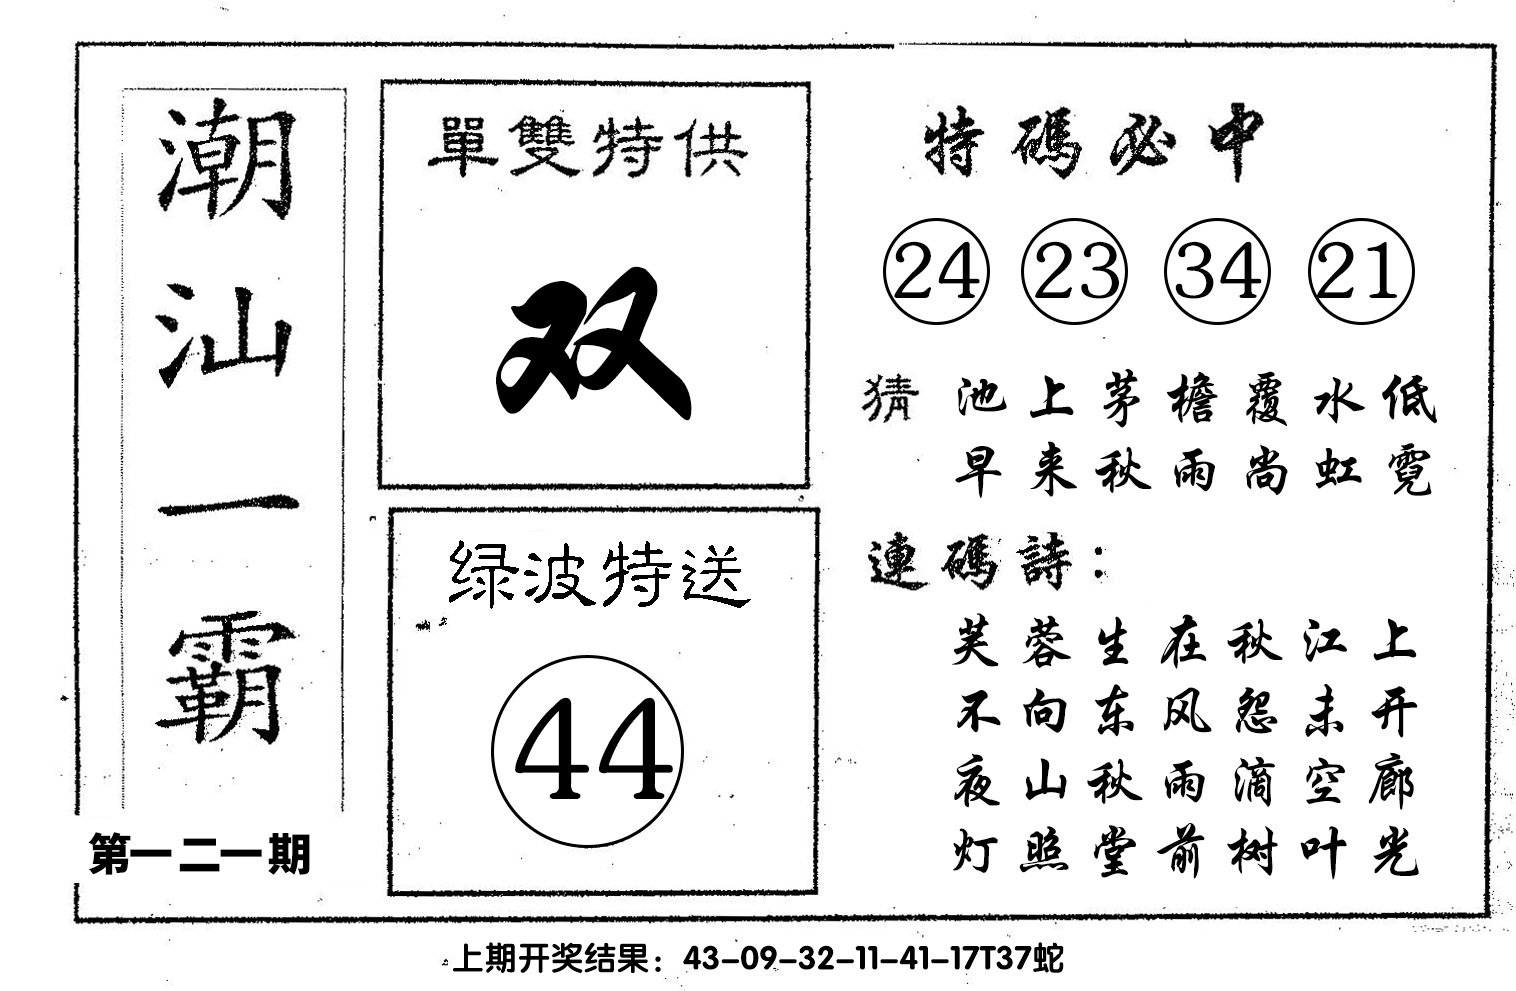 潮汕一霸
第一二一期
單雙特供
双
绿波特送
44
特碼必中
24 23 34 21
猜 池上茅檐覆水低
早来秋雨尚虹霓
連碼詩：
芙蓉生在秋江上
不向东风怨未开
夜山秋雨滴空廊
灯照堂前树叶光
上期开奖结果：43-09-32-11-41-17T37蛇